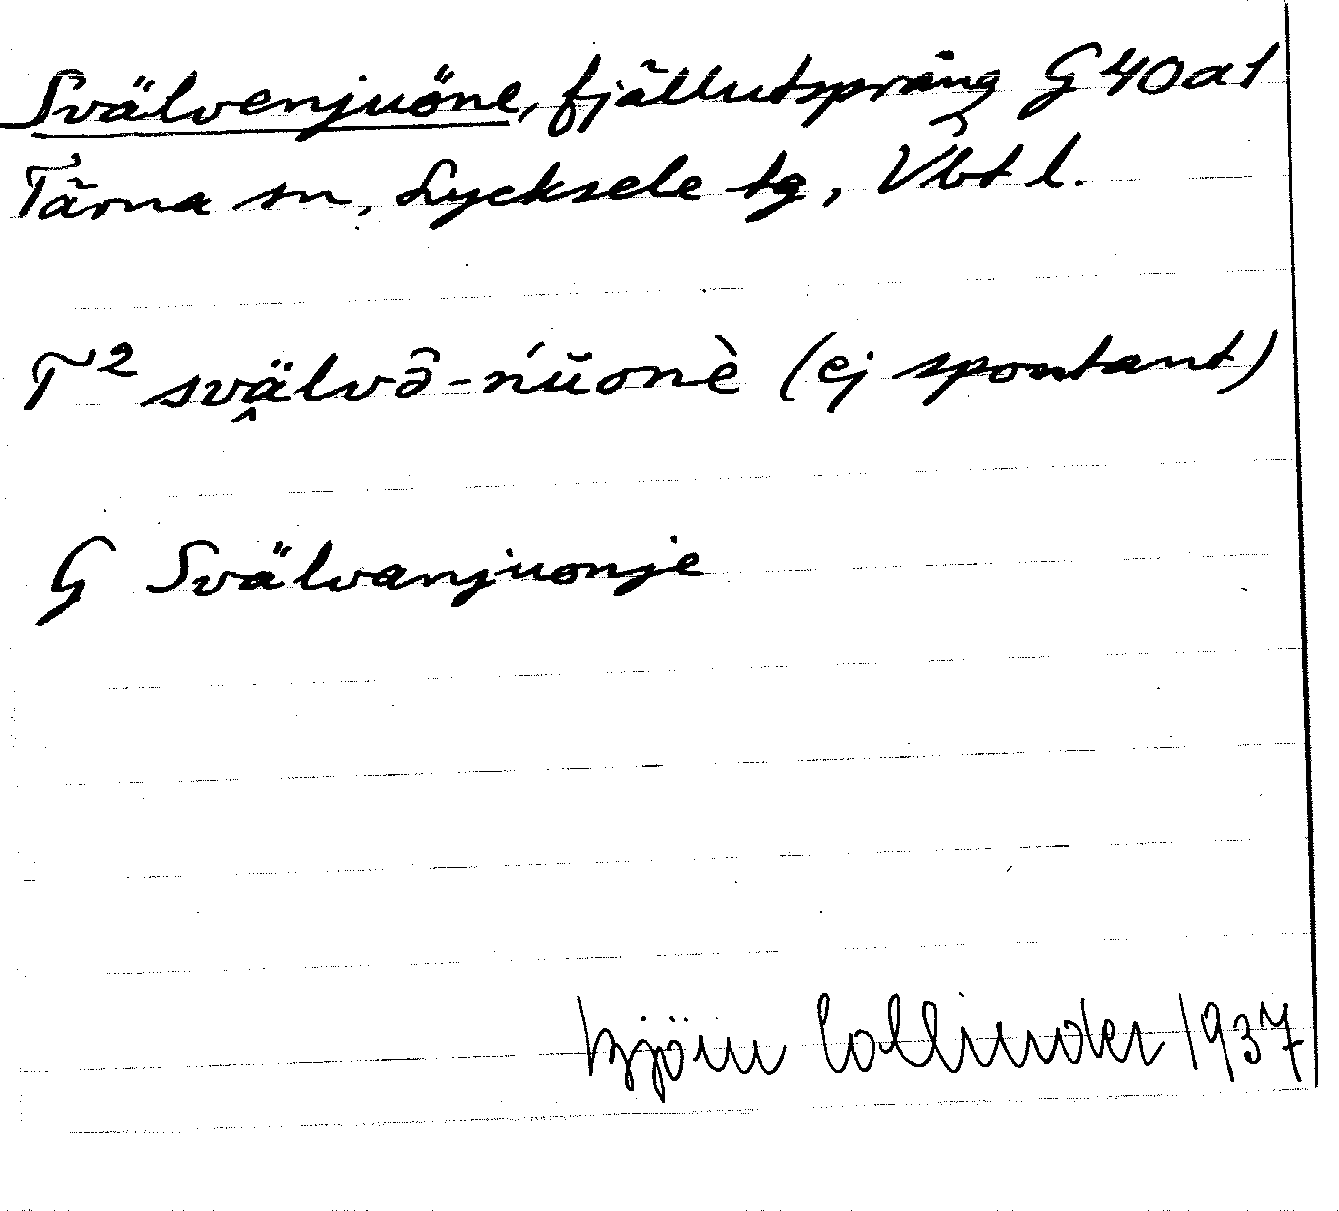 Svälvenjuöne, fjällutsprång G 40 a 1
Tärna sn, Lycksele tg, Vbt l.
T² svä̭lvə̑-ńŭonè (ej spontant)
G Svälvanjuonje
Björn Collinder 1937